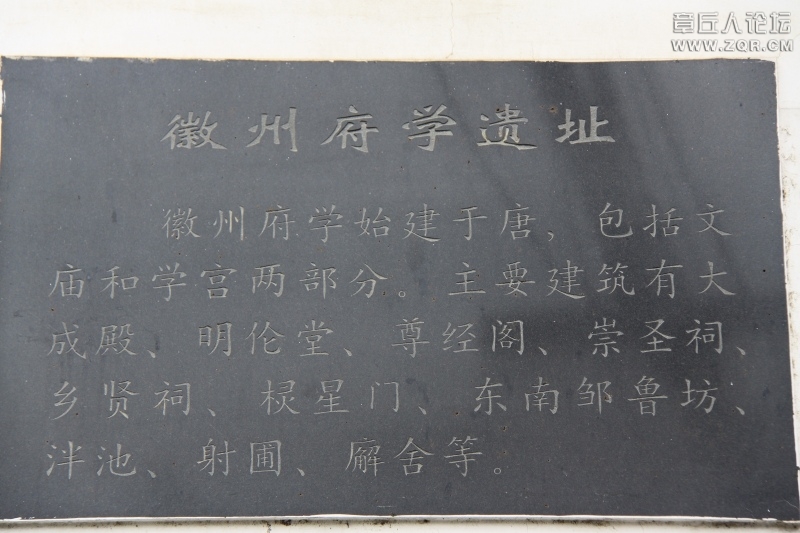 章丘人论坛
WWW.ZQR.CM
徽州府学遗址
徽州府学始建于唐，包括文
庙和学宫两部分。主要建筑有大
成殿、明伦堂、尊经阁、崇圣祠、
乡贤祠、棂星门、东南邹鲁坊、
泮池、射圃、廨舍等。